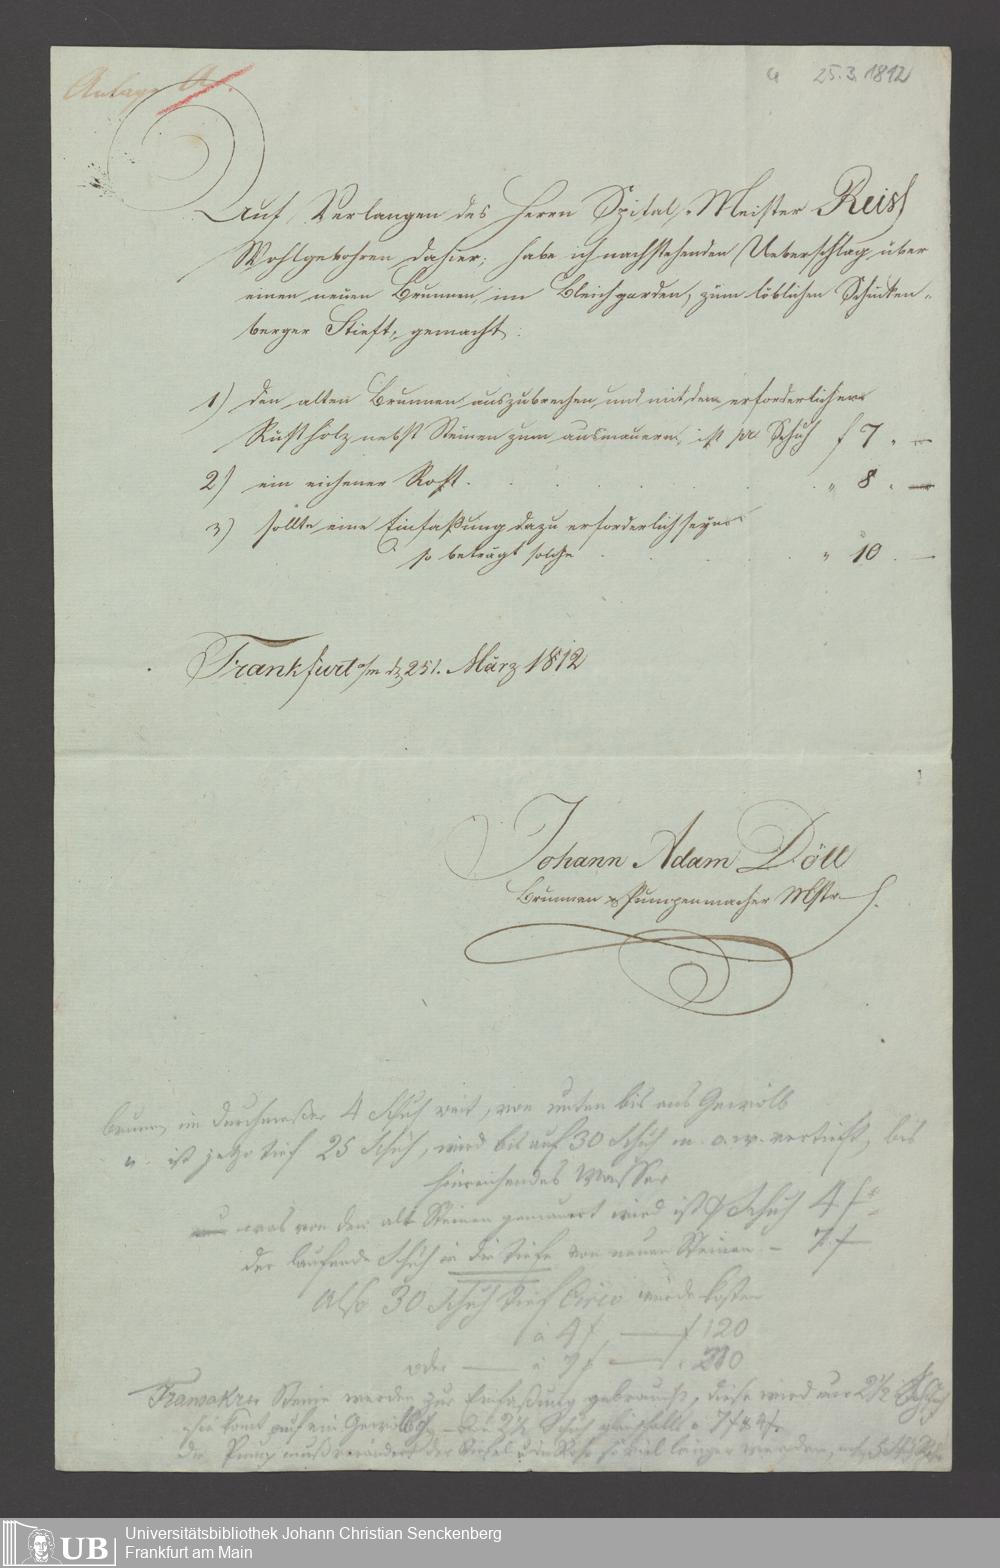 Anlage A.
a 25.3.1812
Auf Verlangen des Herrn Spital-Meister Reiss
Wohlgebohren dahier, habe ich nachstehenden Ueberschlag über
einen neuen Brunnen im Bleichgarden, zum löblichen
berger Stieft, gemacht:
1) den alten Brunnen auszubrechen und mit dem erforderlichen
Rustholz nebst Steinen zum ausmauern, ist pr Schuh f 7 „ —
2) ein eichener Rost. „ 8 „ —
3) sollte eine Einfaßung dazu erforderlich seyn
so beträgt solche „ 10 . —
Frankfurt a/m d 25t. März 1812
Johann Adam Döll
Brunnen & Pumpenmacher Mstr
brunn im durchmeßer 4 Schuh weit, von unten bis ans Gewölb
„ ist jetzo tief 25 Schuh, wird bis auf 30 Schuh u. a.w. vertieft, bis
hinreichendes Wasser
was von den alt Steinen gemauert wird ist Schuh 4 f
der laufende Schuh in die tiefe von neuen Steinen - 7 f
Also 30 Schuh tief Circo würde kosten
à 4 f — f 120
oder — à 7 f — 210
Steine werden zur Einfaßung gebraucht, diese wird nur 2½ Schuh
die Pump muß verändert der und viel länger werden,
Universitätsbibliothek Johann Christian Senckenberg
Frankfurt am Main
UB